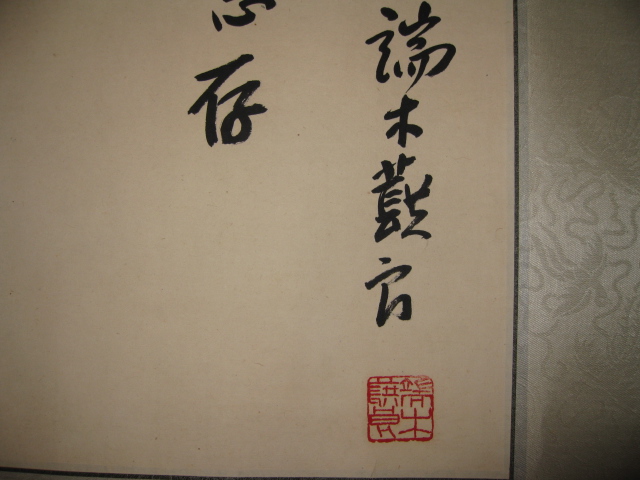 端木蕻良
存
端木
蕻良